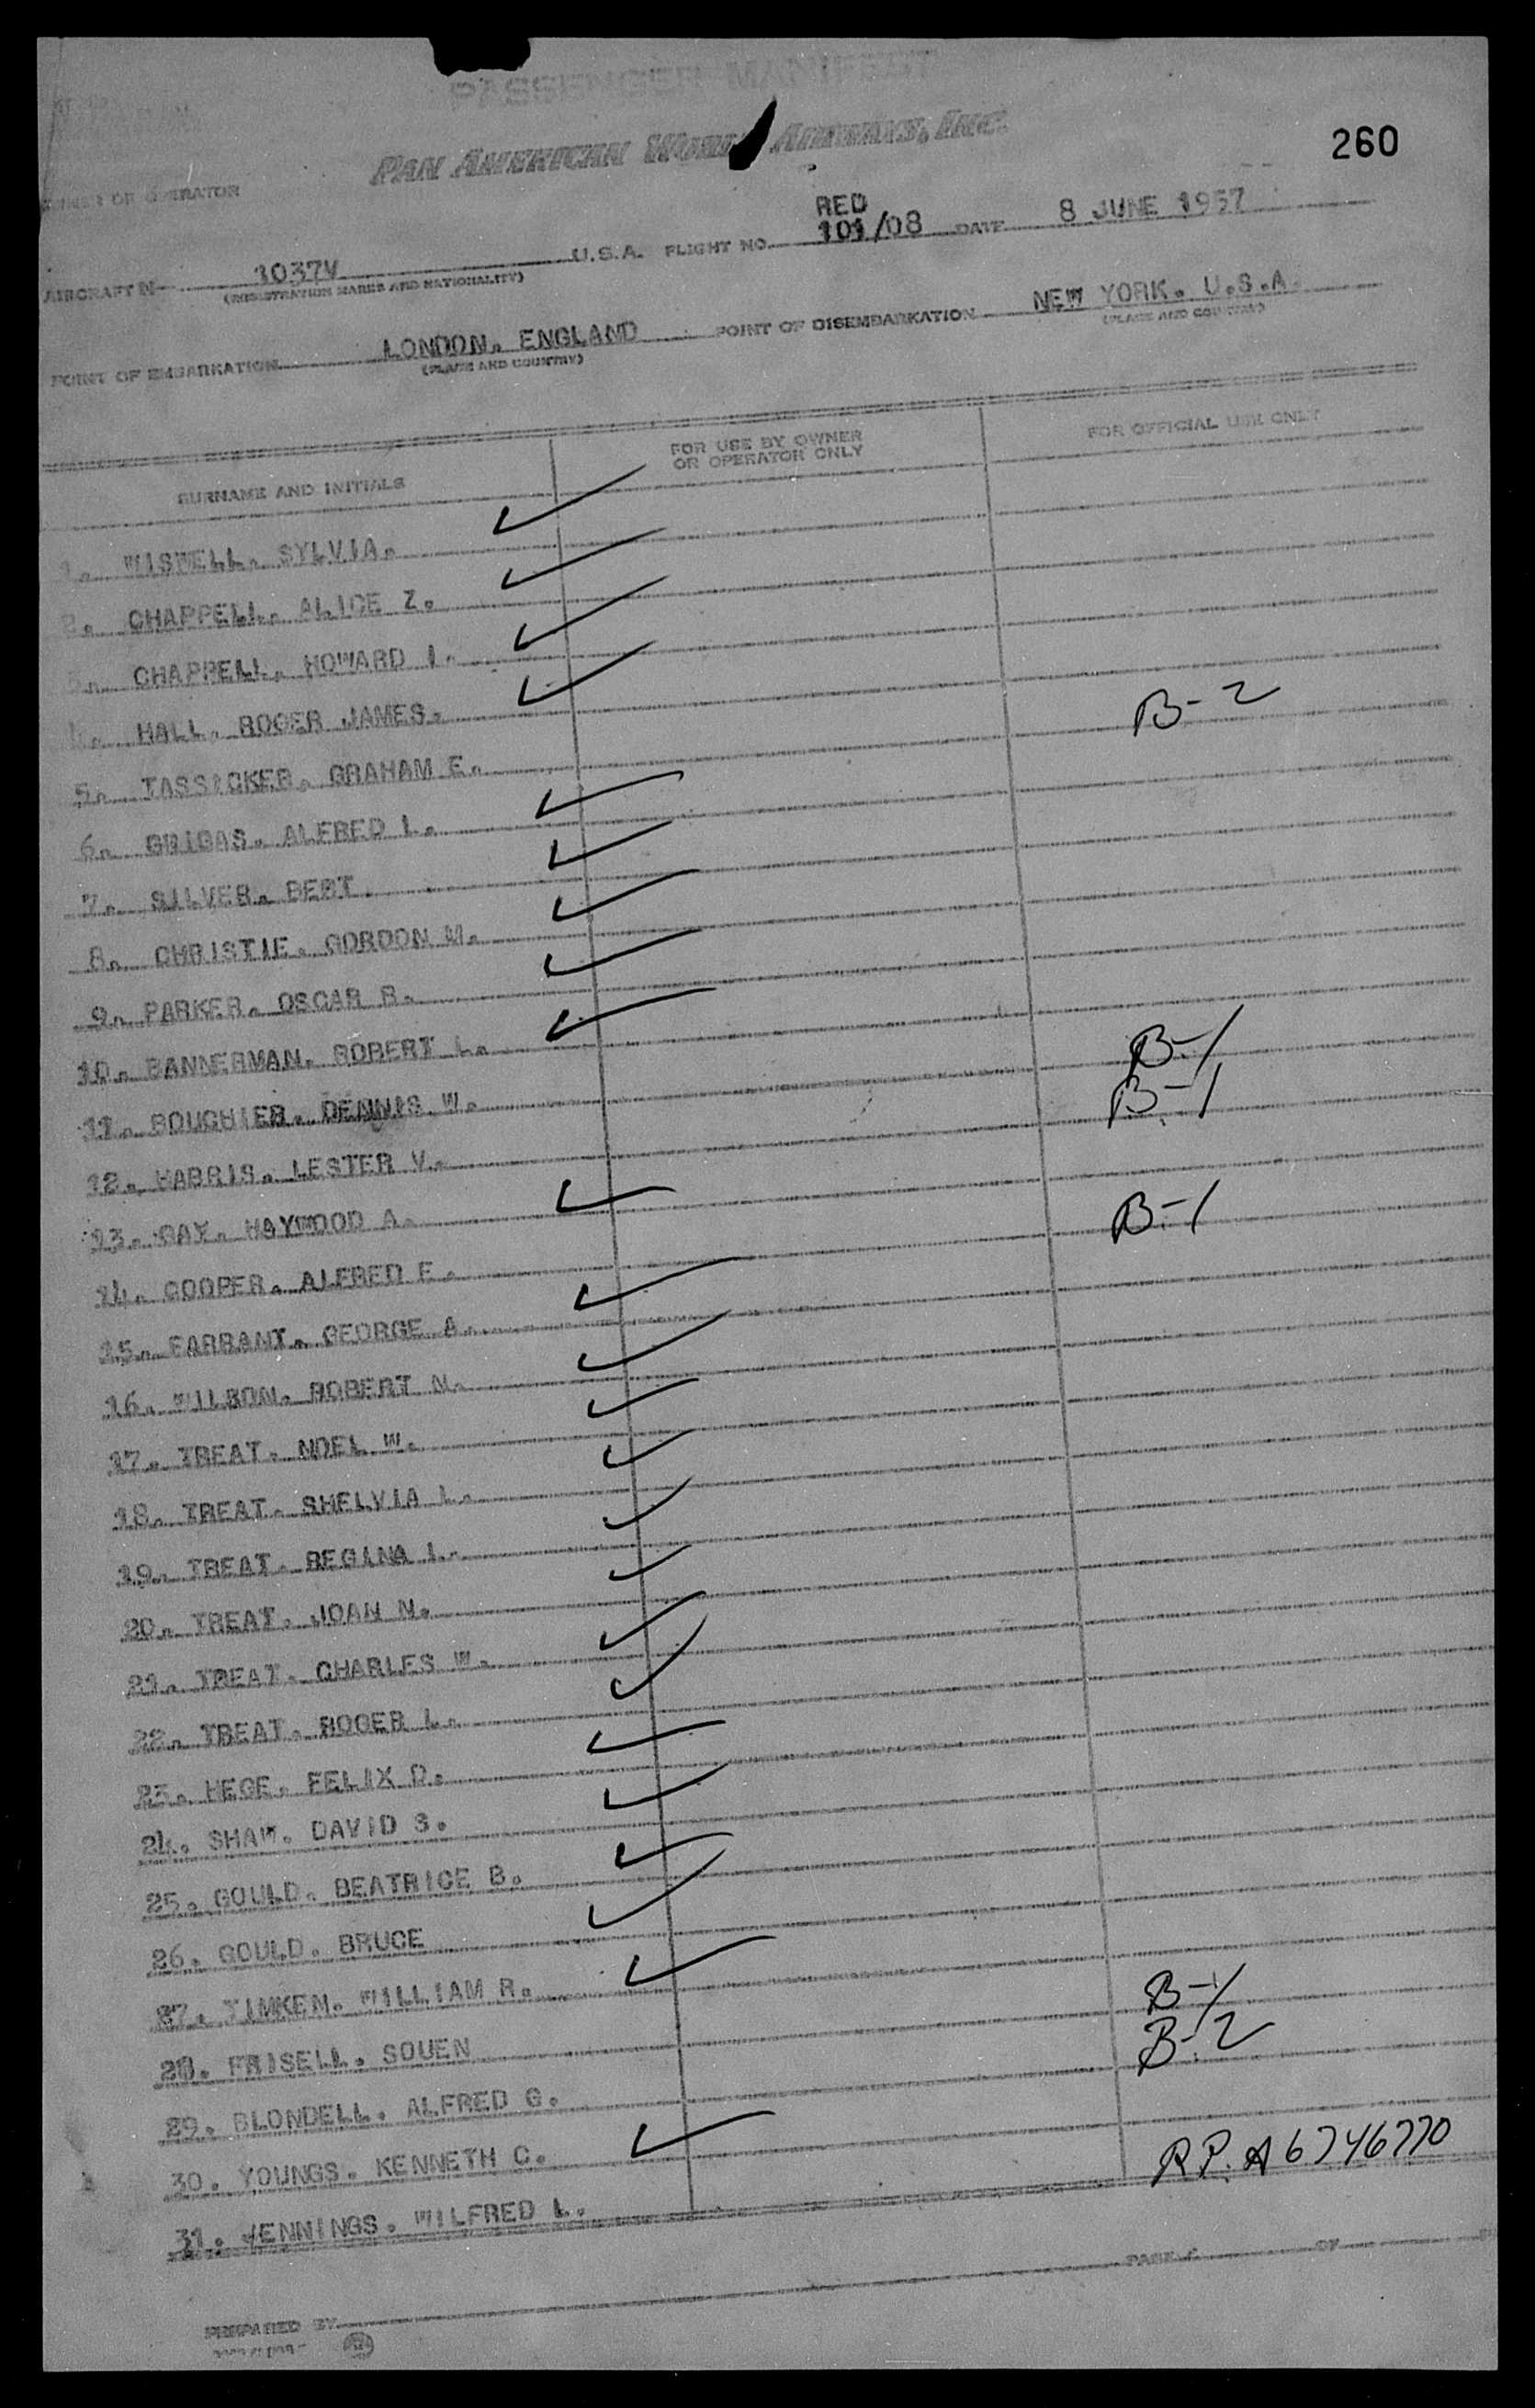 PASSENGER MANIFEST
PAN AMERICAN WORLD AIRWAYS, INC.
260
OWNER OR OPERATOR
RED
AIRCRAFT N 1037V U.S.A. FLIGHT NO. 101/08 DATE 8 JUNE 1957
(REGISTRATION MARKS AND NATIONALITY)
POINT OF EMBARKATION LONDON. ENGLAND POINT OF DISEMBARKATION NEW YORK. U.S.A.
(PLACE AND COUNTRY) (PLACE AND COUNTRY)
SURNAME AND INITIALS FOR USE BY OWNER OR OPERATOR ONLY FOR OFFICIAL USE ONLY
1. WISWELL. SYLVIA. ✓
2. CHAPPELL. ALICE Z. ✓
3. CHAPPELL. HOWARD I. ✓
4. HALL. ROGER JAMES. ✓
5. TASSICKER. GRAHAM E. B-2
6. GRIGAS. ALFRED L. ✓
7. SILVER. BERT ✓
8. CHRISTIE. GORDON M. ✓
9. PARKER. OSCAR R. ✓
10. BANNERMAN. ROBERT L. ✓
11. BOUCHIER. DENNIS W. B-1
12. HARRIS. LESTER V. B-1
13. GAY. HAYWOOD A. ✓
14. COOPER. ALFRED E. B-1
15. FARRANT. GEORGE A. ✓
16. WILSON. ROBERT N. ✓
17. TREAT. NOEL W. ✓
18. TREAT. SHELVIA L. ✓
19. TREAT. REGINA L. ✓
20. TREAT. JOAN N. ✓
21. TREAT. CHARLES W. ✓
22. TREAT. ROGER L. ✓
23. HEGE. FELIX D. ✓
24. SHAW. DAVID S. ✓
25. GOULD. BEATRICE B. ✓
26. GOULD. BRUCE ✓
27. TIMKEN. WILLIAM R. ✓
28. FRISELL. SOUEN B-1
29. BLONDELL. ALFRED G. B-2
30. YOUNGS. KENNETH C. ✓
31. JENNINGS. WILFRED L. RP. A6746770
PAGE OF
PREPARED BY